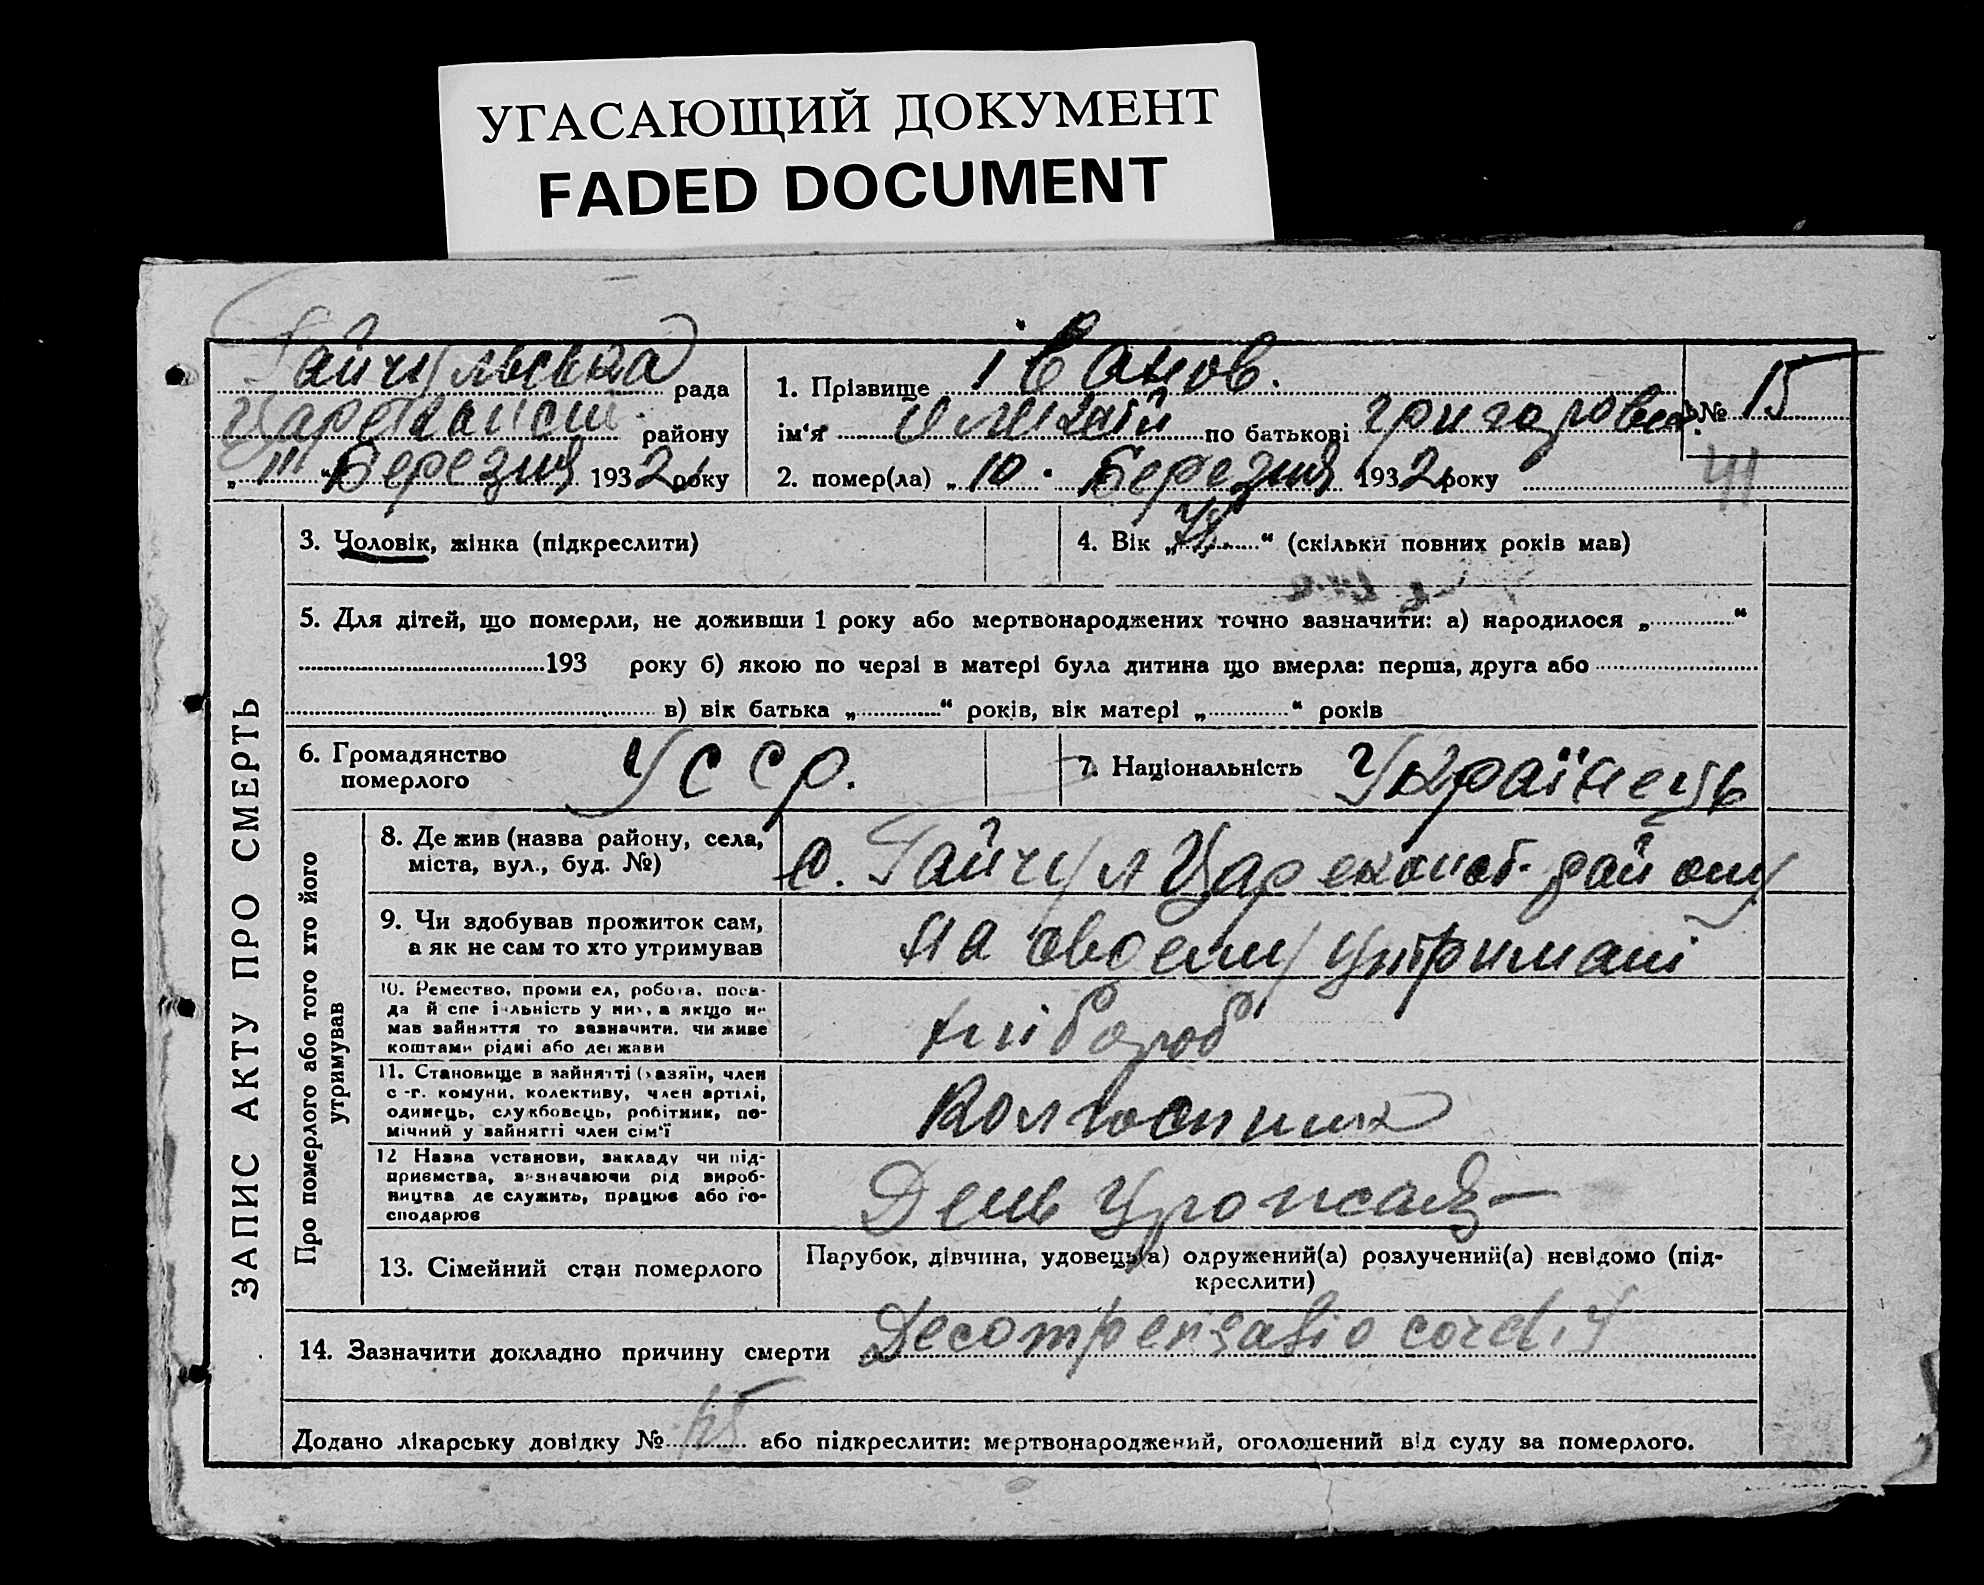 УГАСАЮЩИЙ ДОКУМЕНТ
FADED DOCUMENT
Гайчульська рада
Царекконст. району
„ 11 “ Березня 1932 року
1. Прізвище Іванов.
ім‘я Олексій по батькові Григорович
2. помер(ла) „ 10 . Березня 1932 року
№ 15
41
ЗАПИС АКТУ ПРО СМЕРТЬ
3. Чоловік, жінка (підкреслити)
4. Вік „ “ (скільки повних років мав)
5. Для дітей, що померли, не доживши 1 року або мертвонароджених точно зазначити: а) народилося „ “
193 року б) якою по черзі в матері була дитина що вмерла: перша, друга або
в) вік батька „ “ років, вік матері „ “ років
6. Громадянство
померлого
УССР.
7. Національність Українець
Про померлого або того хто його
утримував
8. Де жив (назва району, села,
міста, вул., буд. №)
с. Гайчул Царекконст. району
9. Чи здобував прожиток сам,
а як не сам то хто утримував
на своему утримані
10. Ремество, промисел, робота, поса-
да й спеціяльність у них, а якщо не
мав зайняття то зазначити, чи живе
коштами рідні або держави
хлібороб
11. Становище в зайнятті (хазяїн, член
с.-г. комуни, колективу, член артілі,
одинець, службовець, робітник, по-
мічний у зайнятті член сім‘ї
Колгоспник
12 Назва установи, закладу чи під-
приємства, зазначаючи рід вироб-
ництва де служить, працює або го-
сподарює
День Урожая
13. Сімейний стан померлого
Парубок, дівчина, удовець(а) одружений(а) розлучений(а) невідомо (під-
креслити)
14. Зазначити докладно причину смерти Decompensatio cord.
Додано лікарську довідку № 15 або підкреслити: мертвонароджений, оголошений від суду за померлого.